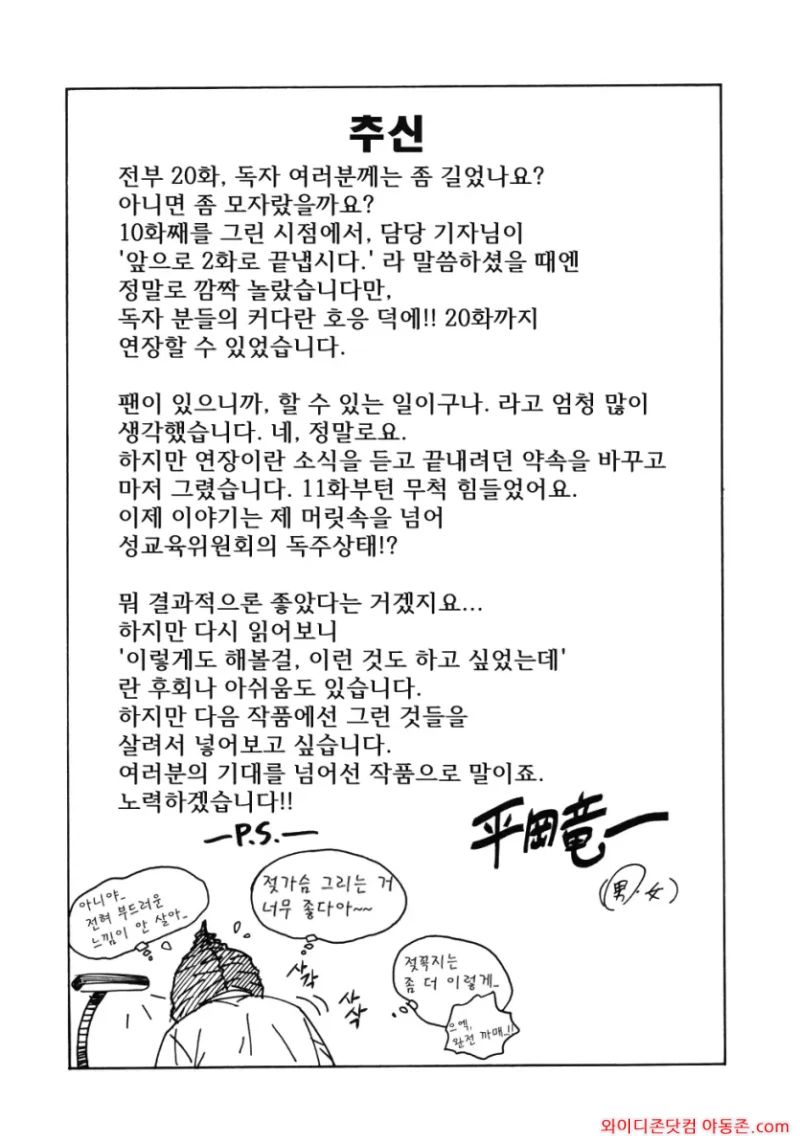 추신
전부 20화, 독자 여러분께는 좀 길었나요?
아니면 좀 모자랐을까요?
10화째를 그린 시점에서, 담당 기자님이
'앞으로 2화로 끝냅시다.' 라 말씀하셨을 때엔
정말로 깜짝 놀랐습니다만,
독자 분들의 커다란 호응 덕에!! 20화까지
연장할 수 있었습니다.
팬이 있으니까, 할 수 있는 일이구나. 라고 엄청 많이
생각했습니다. 네, 정말로요.
하지만 연장이란 소식을 듣고 끝내려던 약속을 바꾸고
마저 그렸습니다. 11화부턴 무척 힘들었어요.
이제 이야기는 제 머릿속을 넘어
성교육위원회의 독주상태!?
뭐 결과적으론 좋았다는 거겠지요...
하지만 다시 읽어보니
'이렇게도 해볼걸, 이런 것도 하고 싶었는데'
란 후회나 아쉬움도 있습니다.
하지만 다음 작품에선 그런 것들을
살려서 넣어보고 싶습니다.
여러분의 기대를 넘어선 작품으로 말이죠.
노력하겠습니다!!
平岡竜一
(男・女)
—P.S.—
아니야_
전혀 부드러운
느낌이 안 살아_
젖가슴 그리는 거
너무 좋다아~~
사각
사삭
젖꼭지는
좀 더 이렇게_
으엑,
완전 까매_!!
와이디존닷컴 야동존.com